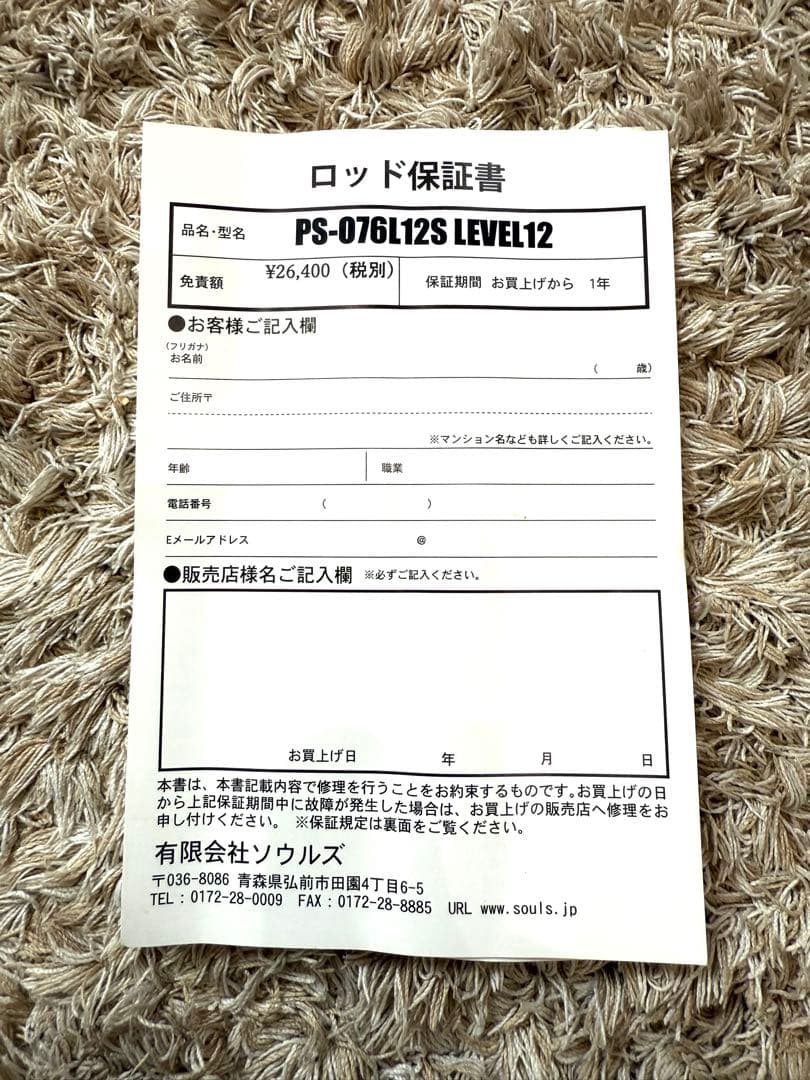 ロッド保証書
品名・型名 PS-076L12S LEVEL12
免責額 ¥26,400（税別） 保証期間 お買上げから 1年
●お客様ご記入欄
（フリガナ）
お名前 （ 歳）
ご住所〒
※マンション名なども詳しくご記入ください。
年齢 職業
電話番号 （ ）
Eメールアドレス @
●販売店様名ご記入欄 ※必ずご記入ください。
お買上げ日 年 月 日
本書は、本書記載内容で修理を行うことをお約束するものです。お買上げの日
から上記保証期間中に故障が発生した場合は、お買上げの販売店へ修理をお
申し付けください。 ※保証規定は裏面をご覧ください。
有限会社ソウルズ
〒036-8086 青森県弘前市田園4丁目6-5
TEL：0172-28-0009 FAX：0172-28-8885 URL www.souls.jp